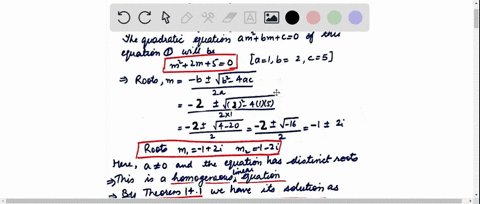 The quadratic equation am²+bm+c=0 of this
equation ① will be
m²+2m+5=0 [a=1, b= 2, c=5]
⇒ Roots, m = -b ± √b²-4ac / 2a
= -2 ± √(2)²-4(1)(5) / 2×1
= -2 ± √4-20 / 2 = -2 ± √-16 / 2 = -1 ± 2i
Roots m₁=-1+2i m₂=1-2i
Here, a≠0 and the equation has distinct roots
⇒This is a homogeneous linear equation
⇒ By Theorem 14.1 we have its solution as